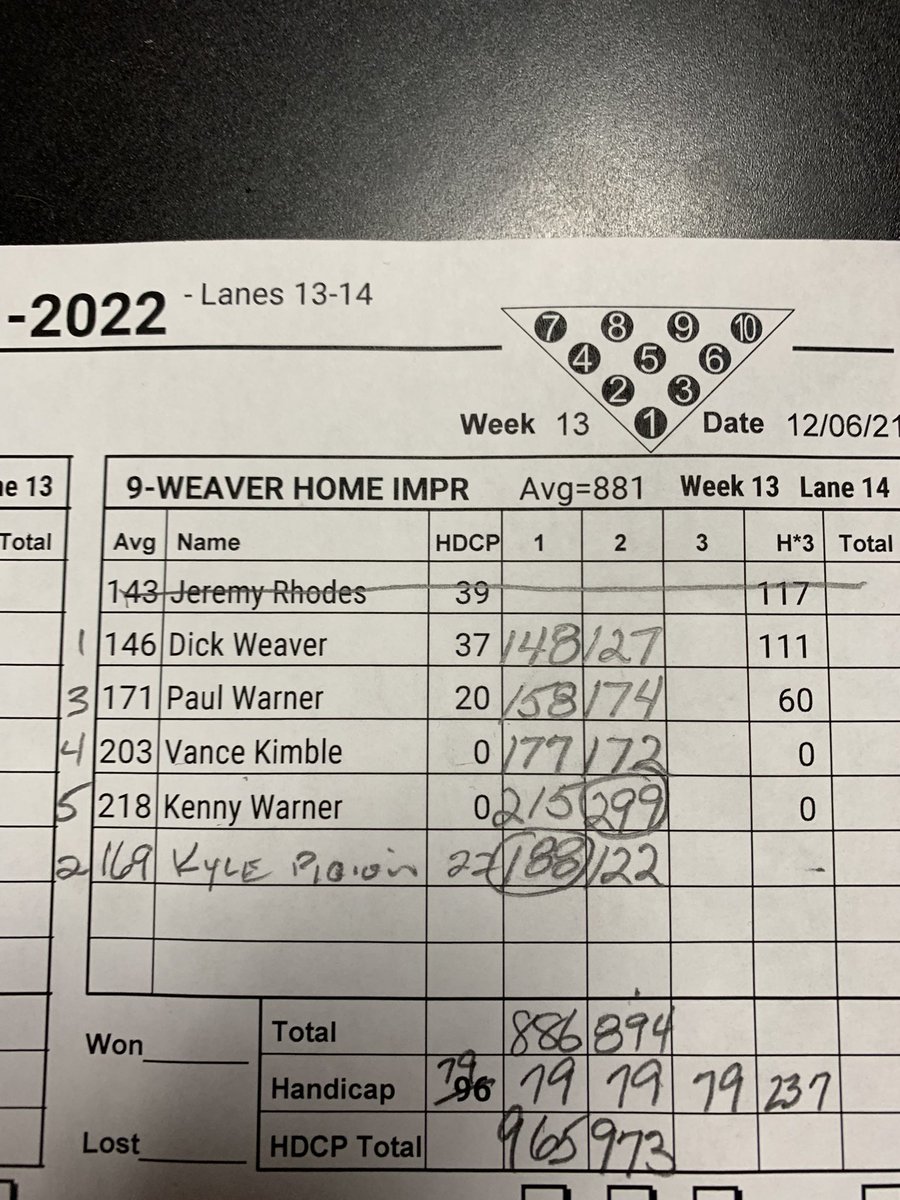 -2022 - Lanes 13-14
7 8 9 10
4 5 6
2 3
1
Week 13 Date 12/06/21
ne 13 9-WEAVER HOME IMPR Avg=881 Week 13 Lane 14
Total Avg Name HDCP 1 2 3 H*3 Total
143 Jeremy Rhodes 39 117
1 146 Dick Weaver 37 148 127 111
3 171 Paul Warner 20 158 174 60
4 203 Vance Kimble 0 177 172 0
5 218 Kenny Warner 0 215 299 0
2 169 KYLE 22 188 122 -
Won Total 886 894
Handicap 79 96 79 79 79 237
Lost HDCP Total 965 973